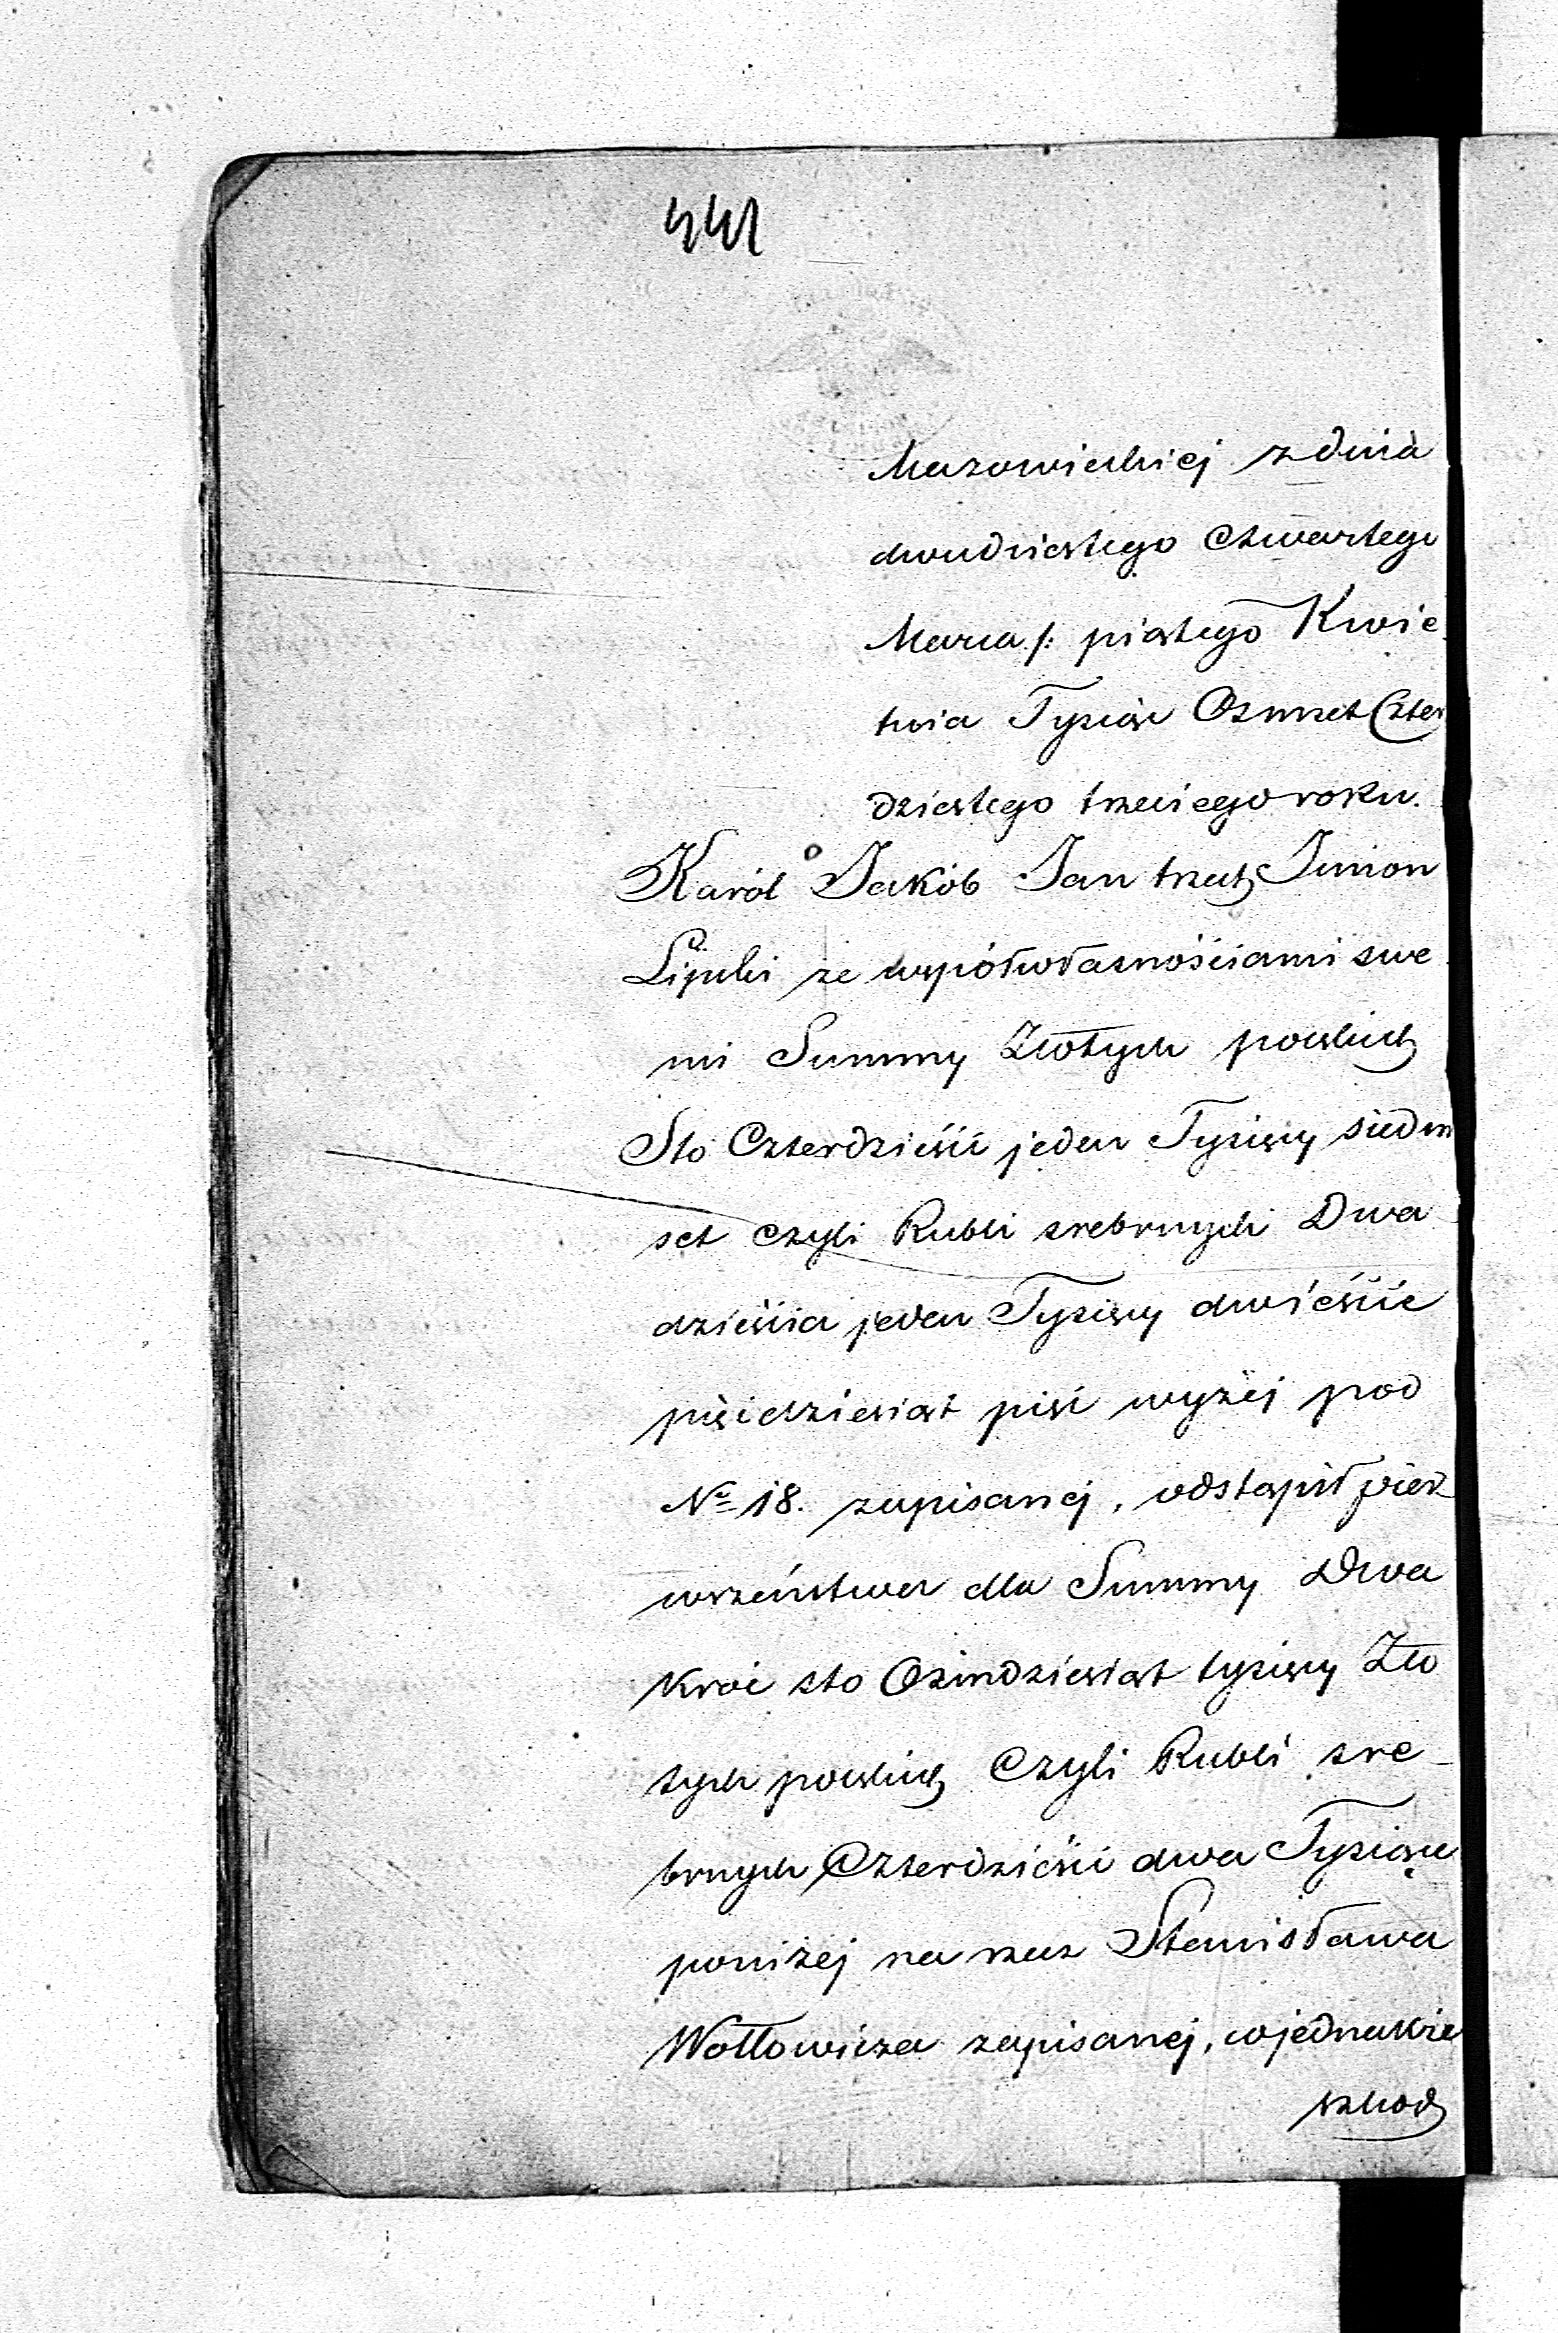 441
Mazowieckiej z dnia
dwudziestego Czwartego
Marca /: piątego Kwie
tnia Tysiąc Osmset Czter
dziestego trzeciego roku.
Karól Jakób Jan trzech Imion
Lipski ze współwłasnościami swe
mi Summy Złotych polskich
Sto Czterdzieści jeden Tysięcy siedm
set czyli Rubli srebrnych Dwa
dzieścia jeden Tysięcy dwieście
pięćdziesiąt pięć wyżej pod
No 18. zapisanej, odstąpił pier
wszeństwa dla Summy Dwa
kroć sto Ośmdziesiąt tysięcy Zło
tych polskich Czyli Rubli sre-
brnych Czterdzieści dwa Tysiące
poniżej na rzecz Stanisława
Wołłowicza zapisanej, wjednakże